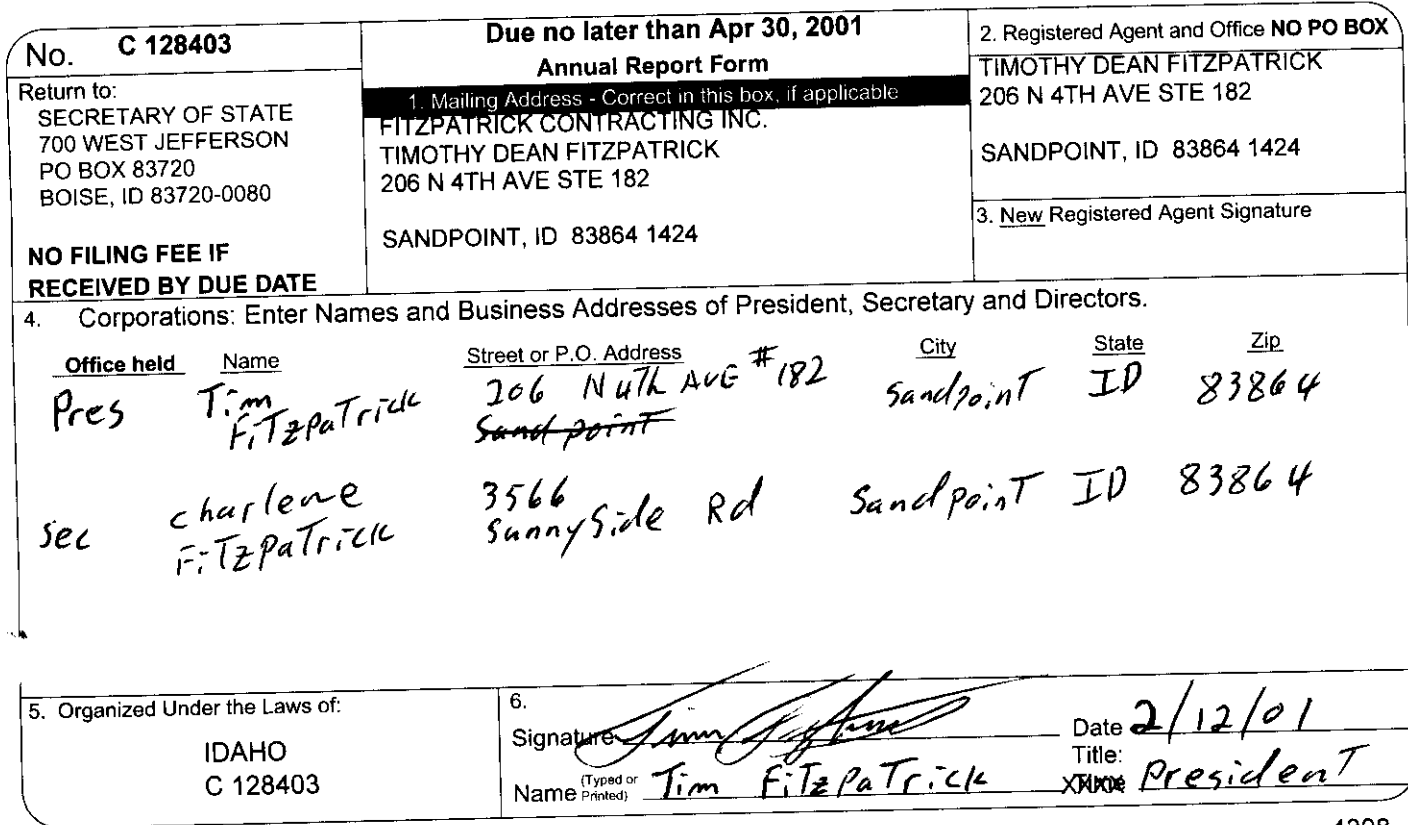 No. C 128403
Return to:
SECRETARY OF STATE
700 WEST JEFFERSON
PO BOX 83720
BOISE, ID 83720-0080
NO FILING FEE IF
RECEIVED BY DUE DATE
Due no later than Apr 30, 2001
Annual Report Form
1. Mailing Address - Correct in this box, if applicable
FITZPATRICK CONTRACTING INC.
TIMOTHY DEAN FITZPATRICK
206 N 4TH AVE STE 182
SANDPOINT, ID 83864 1424
2. Registered Agent and Office NO PO BOX
TIMOTHY DEAN FITZPATRICK
206 N 4TH AVE STE 182
SANDPOINT, ID 83864 1424
3. New Registered Agent Signature
4. Corporations: Enter Names and Business Addresses of President, Secretary and Directors.
Office held Name Street or P.O. Address City State Zip
Pres Tim 206 N 4Th AvE #182 SandpoinT ID 83864
FiTzpaTrick Sandpoint
Sec charlene 3566 SandpoinT ID 83864
FiTzpaTrick SunnySide Rd
5. Organized Under the Laws of:
IDAHO
C 128403
6.
Signature Date 2/12/01
Title:
Name (Typed or Printed) Tim FiTzpaTrick PresidenT